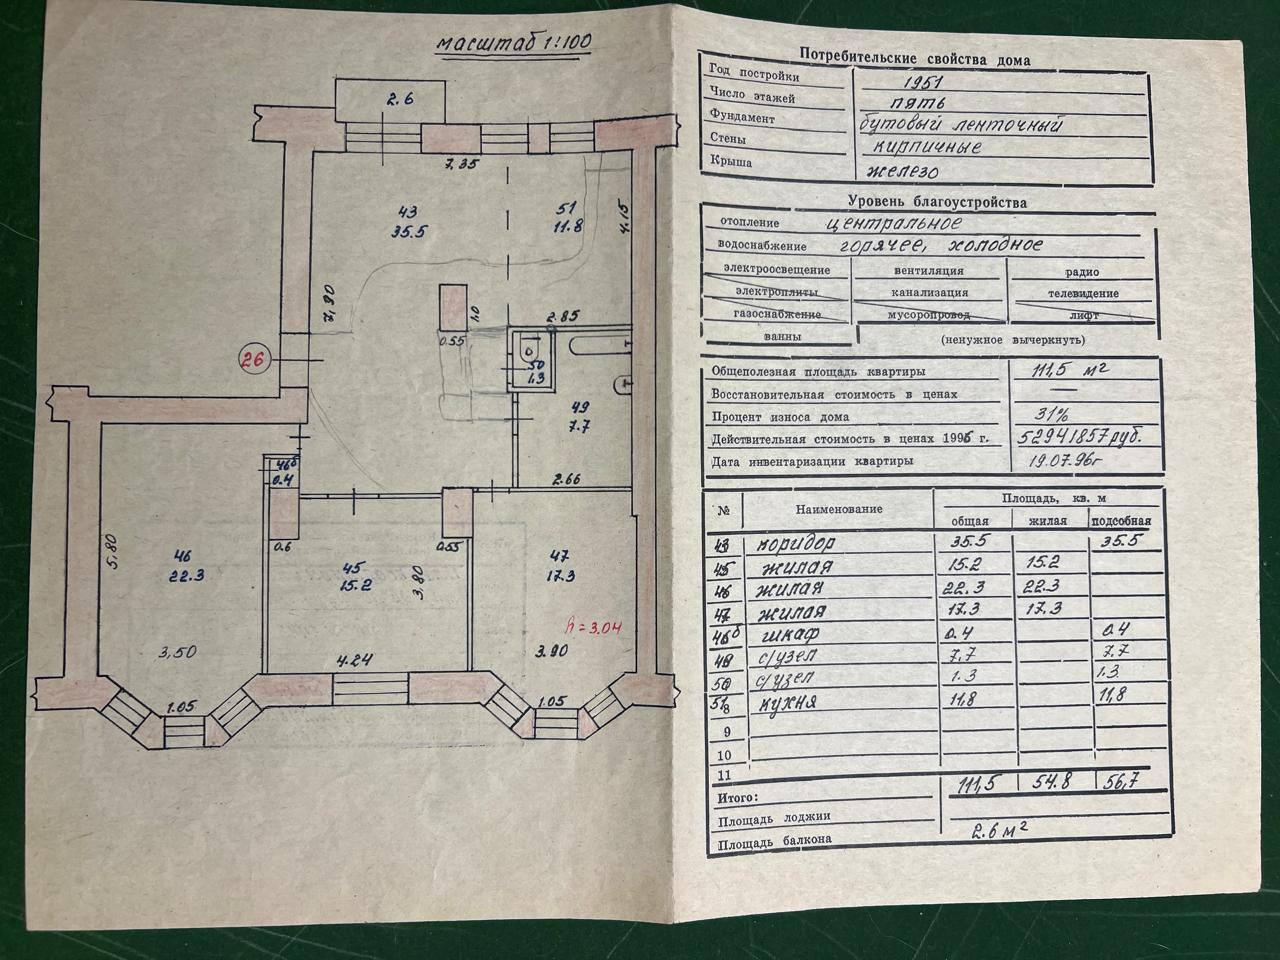 масштаб 1:100
2.6
7.35
43
35.5
51
11.8
4.15
7,90
1.0
0.55
2.85
26
50
1.3
49
7.7
2.66
46б
0.4
0.6
0.55
5,80
46
22.3
45
15.2
3,80
47
17.3
h = 3.04
3,50
4.24
3.90
1.05
1.05
Потребительские свойства дома
Год постройки 1951
Число этажей пять
Фундамент бутовый ленточный
Стены кирпичные
Крыша железо
Уровень благоустройства
отопление центральное
водоснабжение горячее, холодное
электроосвещение вентиляция радио
электроплиты канализация телевидение
газоснабжение мусоропровод лифт
ванны (ненужное вычеркнуть)
Общеполезная площадь квартиры 111,5 м²
Восстановительная стоимость в ценах —
Процент износа дома 31%
Действительная стоимость в ценах 1996 г. 52941857 руб.
Дата инвентаризации квартиры 19.07.96г
№ Наименование Площадь, кв. м
общая жилая подсобная
43 коридор 35.5 35.5
45 жилая 15.2 15.2
46 жилая 22.3 22.3
47 жилая 17.3 17.3
46б шкаф 0.4 0.4
49 с/узел 7.7 7.7
50 с/узел 1.3 1.3
51 8 кухня 11,8 11,8
9
10
11
Итого: 111,5 54.8 56,7
Площадь лоджии
Площадь балкона 2.6 м²